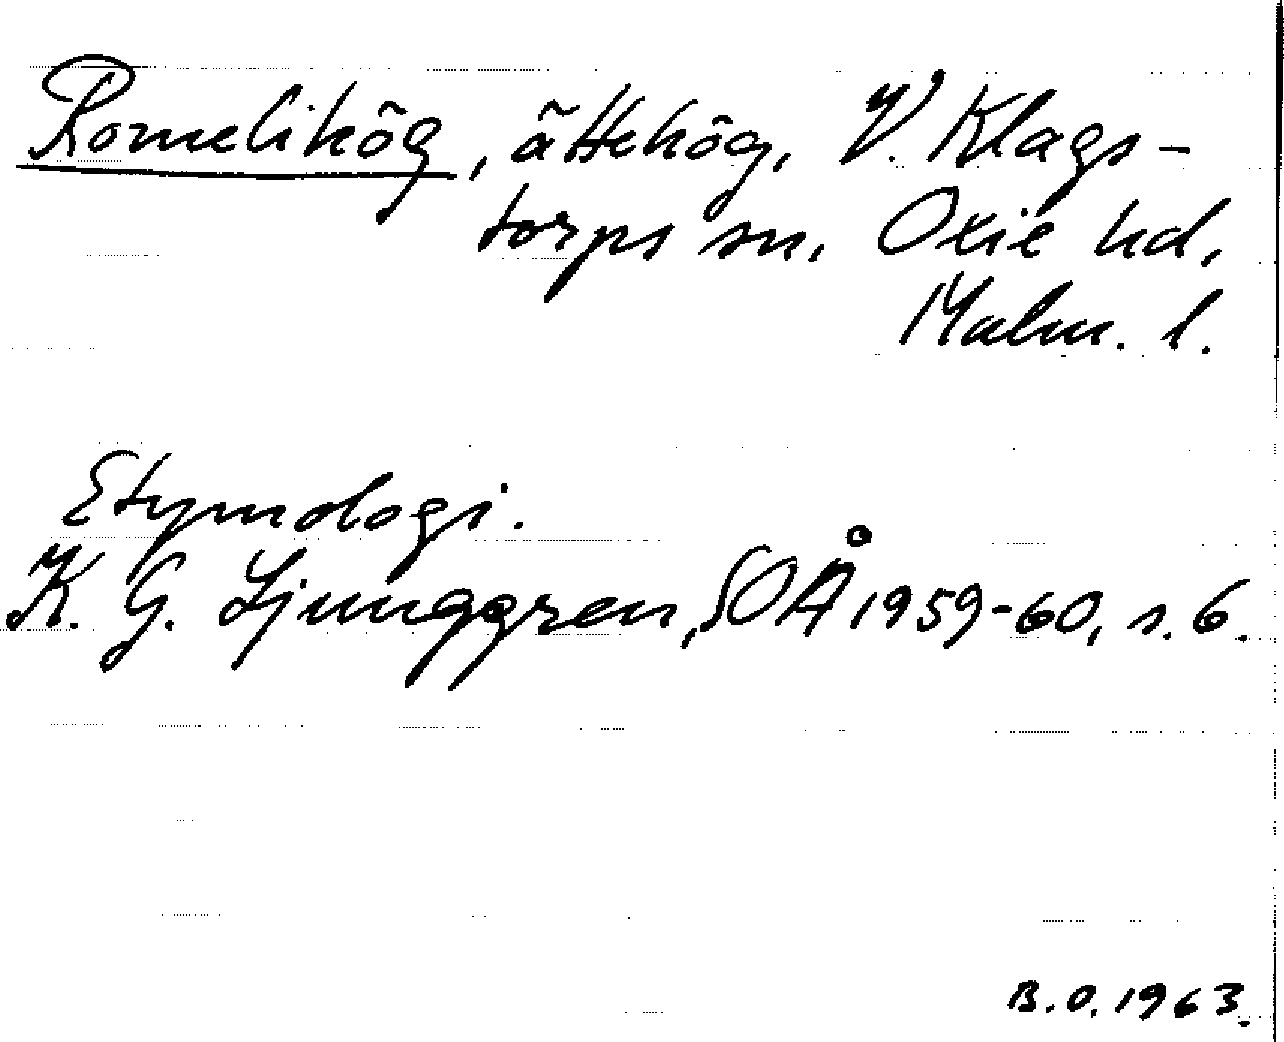 Romelihög, ättehög, V. Klags-
torps sn, Oxie hd,
Malm. l.
Etymologi.
K. G. Ljunggren, SOÅ 1959-60, s. 6.
B.O. 1963.